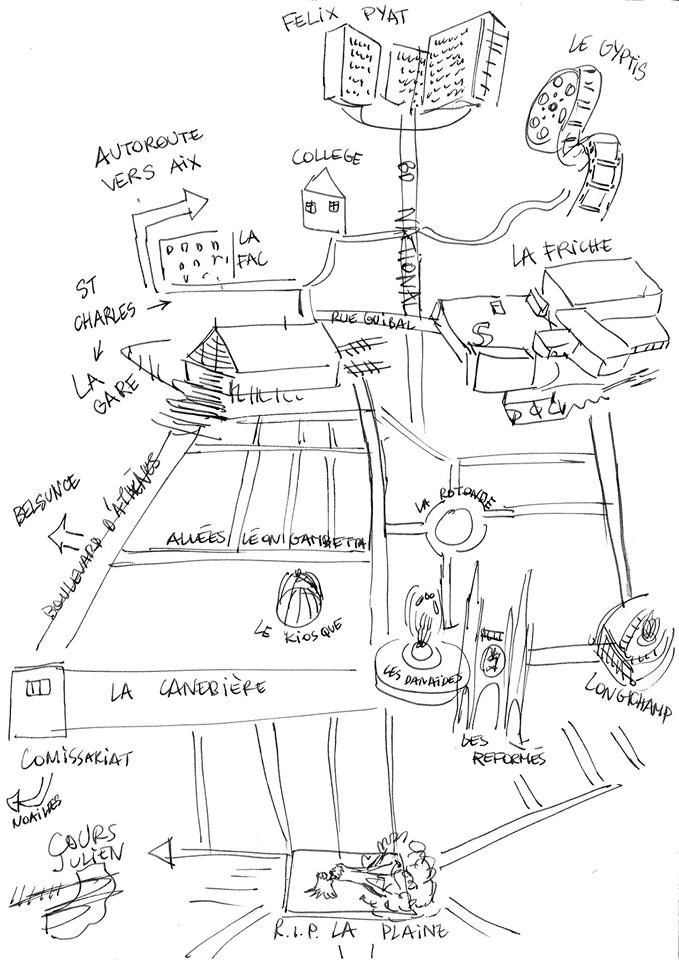 FELIX PYAT
LE GYPTIS
AUTOROUTE
VERS AIX
COLLEGE
LA
FAC
60 NATIONAL
LA FRICHE
ST
CHARLES
LA
GARE
RUE GUIBAL
BELSUNCE
BOULEVARD D'ATHÈNES
LA ROTONDE
ALLÉES LÉON GAMBETTA
LE KIOSQUE
LES DANAÏDES
LONGCHAMP
LA CANEBIÈRE
LES
REFORMÉS
COMISSARIAT
NOAILLES
COURS
JULIEN
R.I.P. LA PLAINE